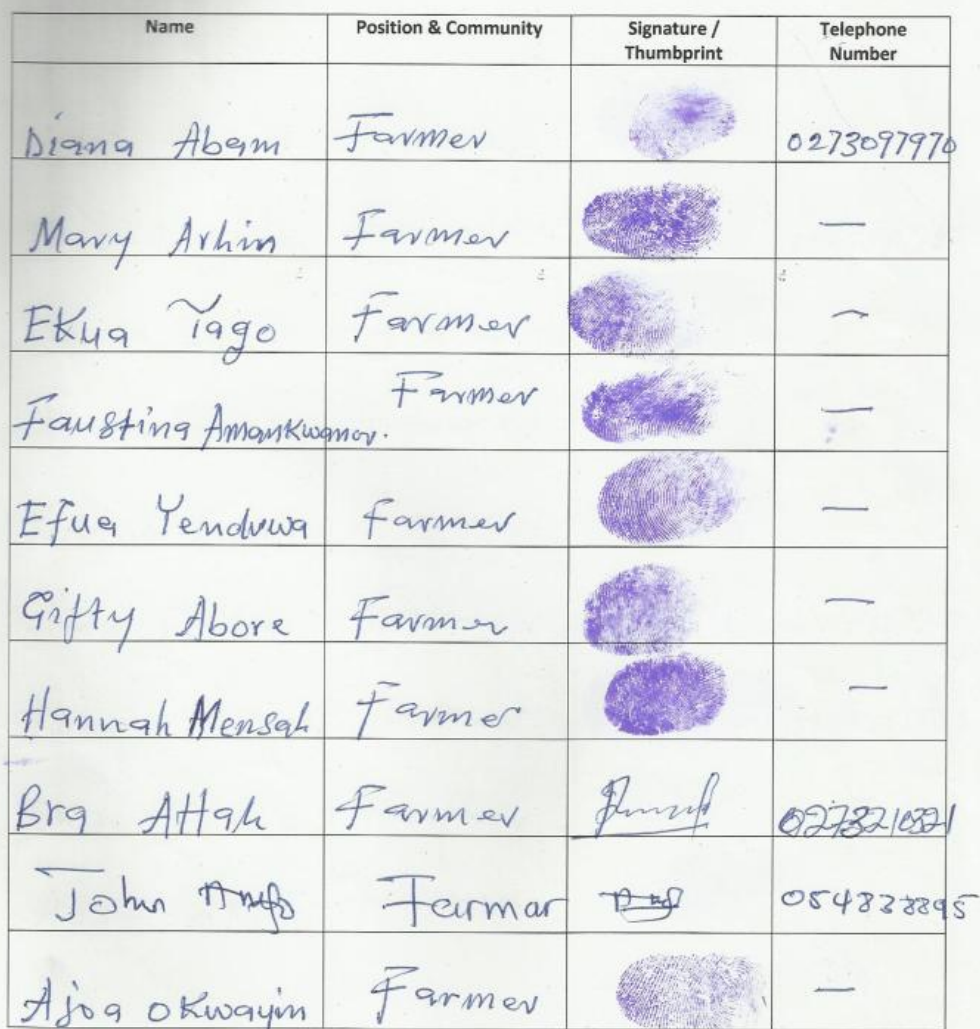 Name Position & Community Signature / Thumbprint Telephone Number
Diana Abam Farmer 0273097970
Mary Arhin Farmer —
Ekua Tago Farmer —
Faustina Amankwanor. Farmer —
Efua Yenduwa Farmer —
Gifty Abore Farmer —
Hannah Mensah Farmer —
Bra Attah Farmer
John Farmar
Ajoa Okwayin Farmer —